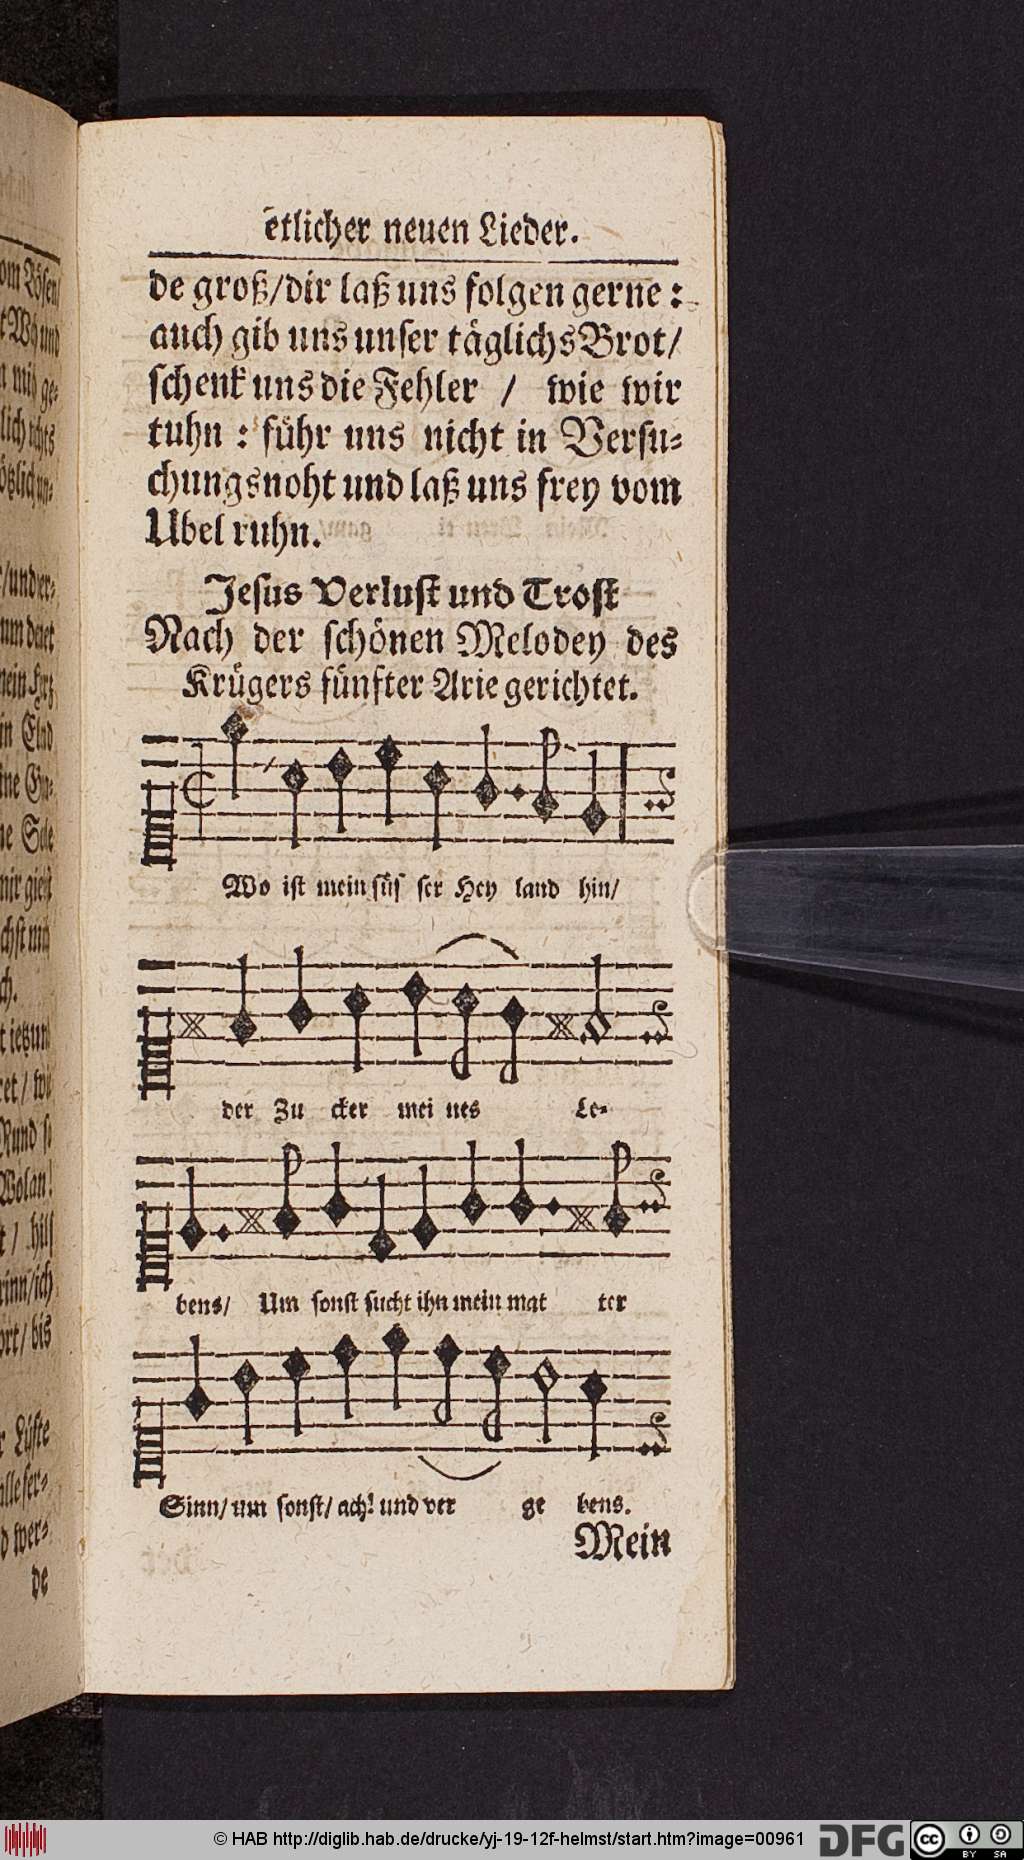 etlicher neuen Lieder.
de groß/dir laß uns folgen gerne :
auch gib uns unſer täglichs Brot/
ſchenk uns die Fehler / wie wir
tuhn : führ uns nicht in Verſu⸗
chungsnoht und laß uns frey vom
Ubel ruhn.
Jeſus Verluſt und Troſt
Nach der ſchönen Melodey des
Krügers fünfter Arie gerichtet.
Wo iſt mein ſüſ ſer Hey land hin/
der Zu cker mei nes Le⸗
bens/ Um ſonſt ſucht ihn mein mat ter
Sinn/ um ſonſt/ ach! und ver ge bens.
Mein
om Böſen/
und
ge⸗
/und er⸗
mein
Elnd
mir
ch.
Wolan!
/ hilf
/ich
ort/ bis
Lüſte
de
© HAB http://diglib.hab.de/drucke/yj-19-12f-helmst/start.htm?image=00961
DFG
cc
BY SA